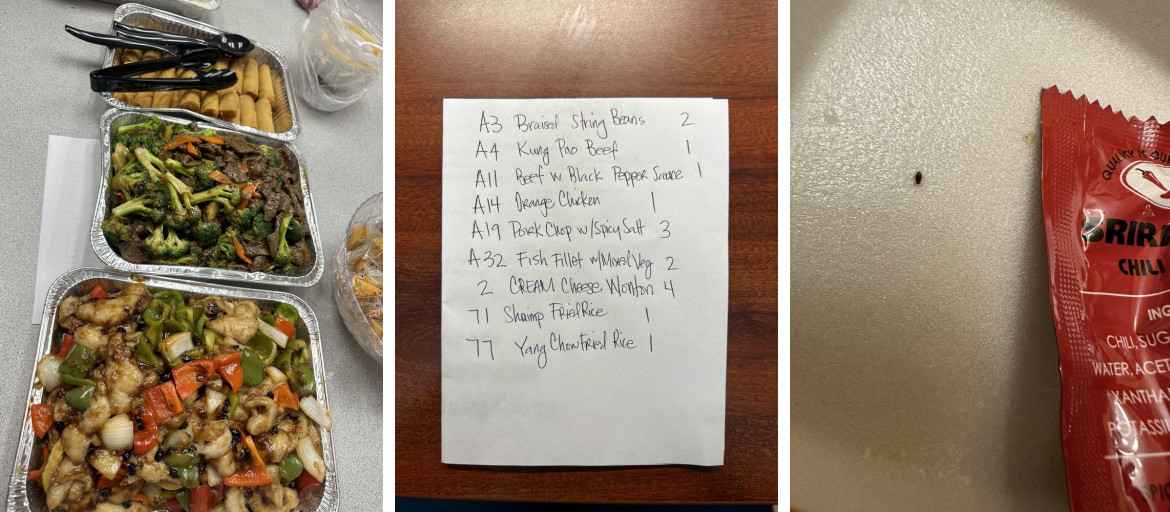 A3 Braised String Beans 2
A4 Kung Pao Beef 1
A11 Beef w Black Pepper Sauce 1
A14 Orange Chicken 1
A19 Pork Chop w/Spicy Salt 3
A32 Fish Fillet w/Mixed Veg 2
2 CREAM Cheese Wonton 4
71 Shrimp Fried Rice 1
77 Yang Chow Fried Rice 1
QUALITY IS OU
SRIR
CHILI
ING
CHILI, SUG
WATER, ACET
XANTHA
POTASSI